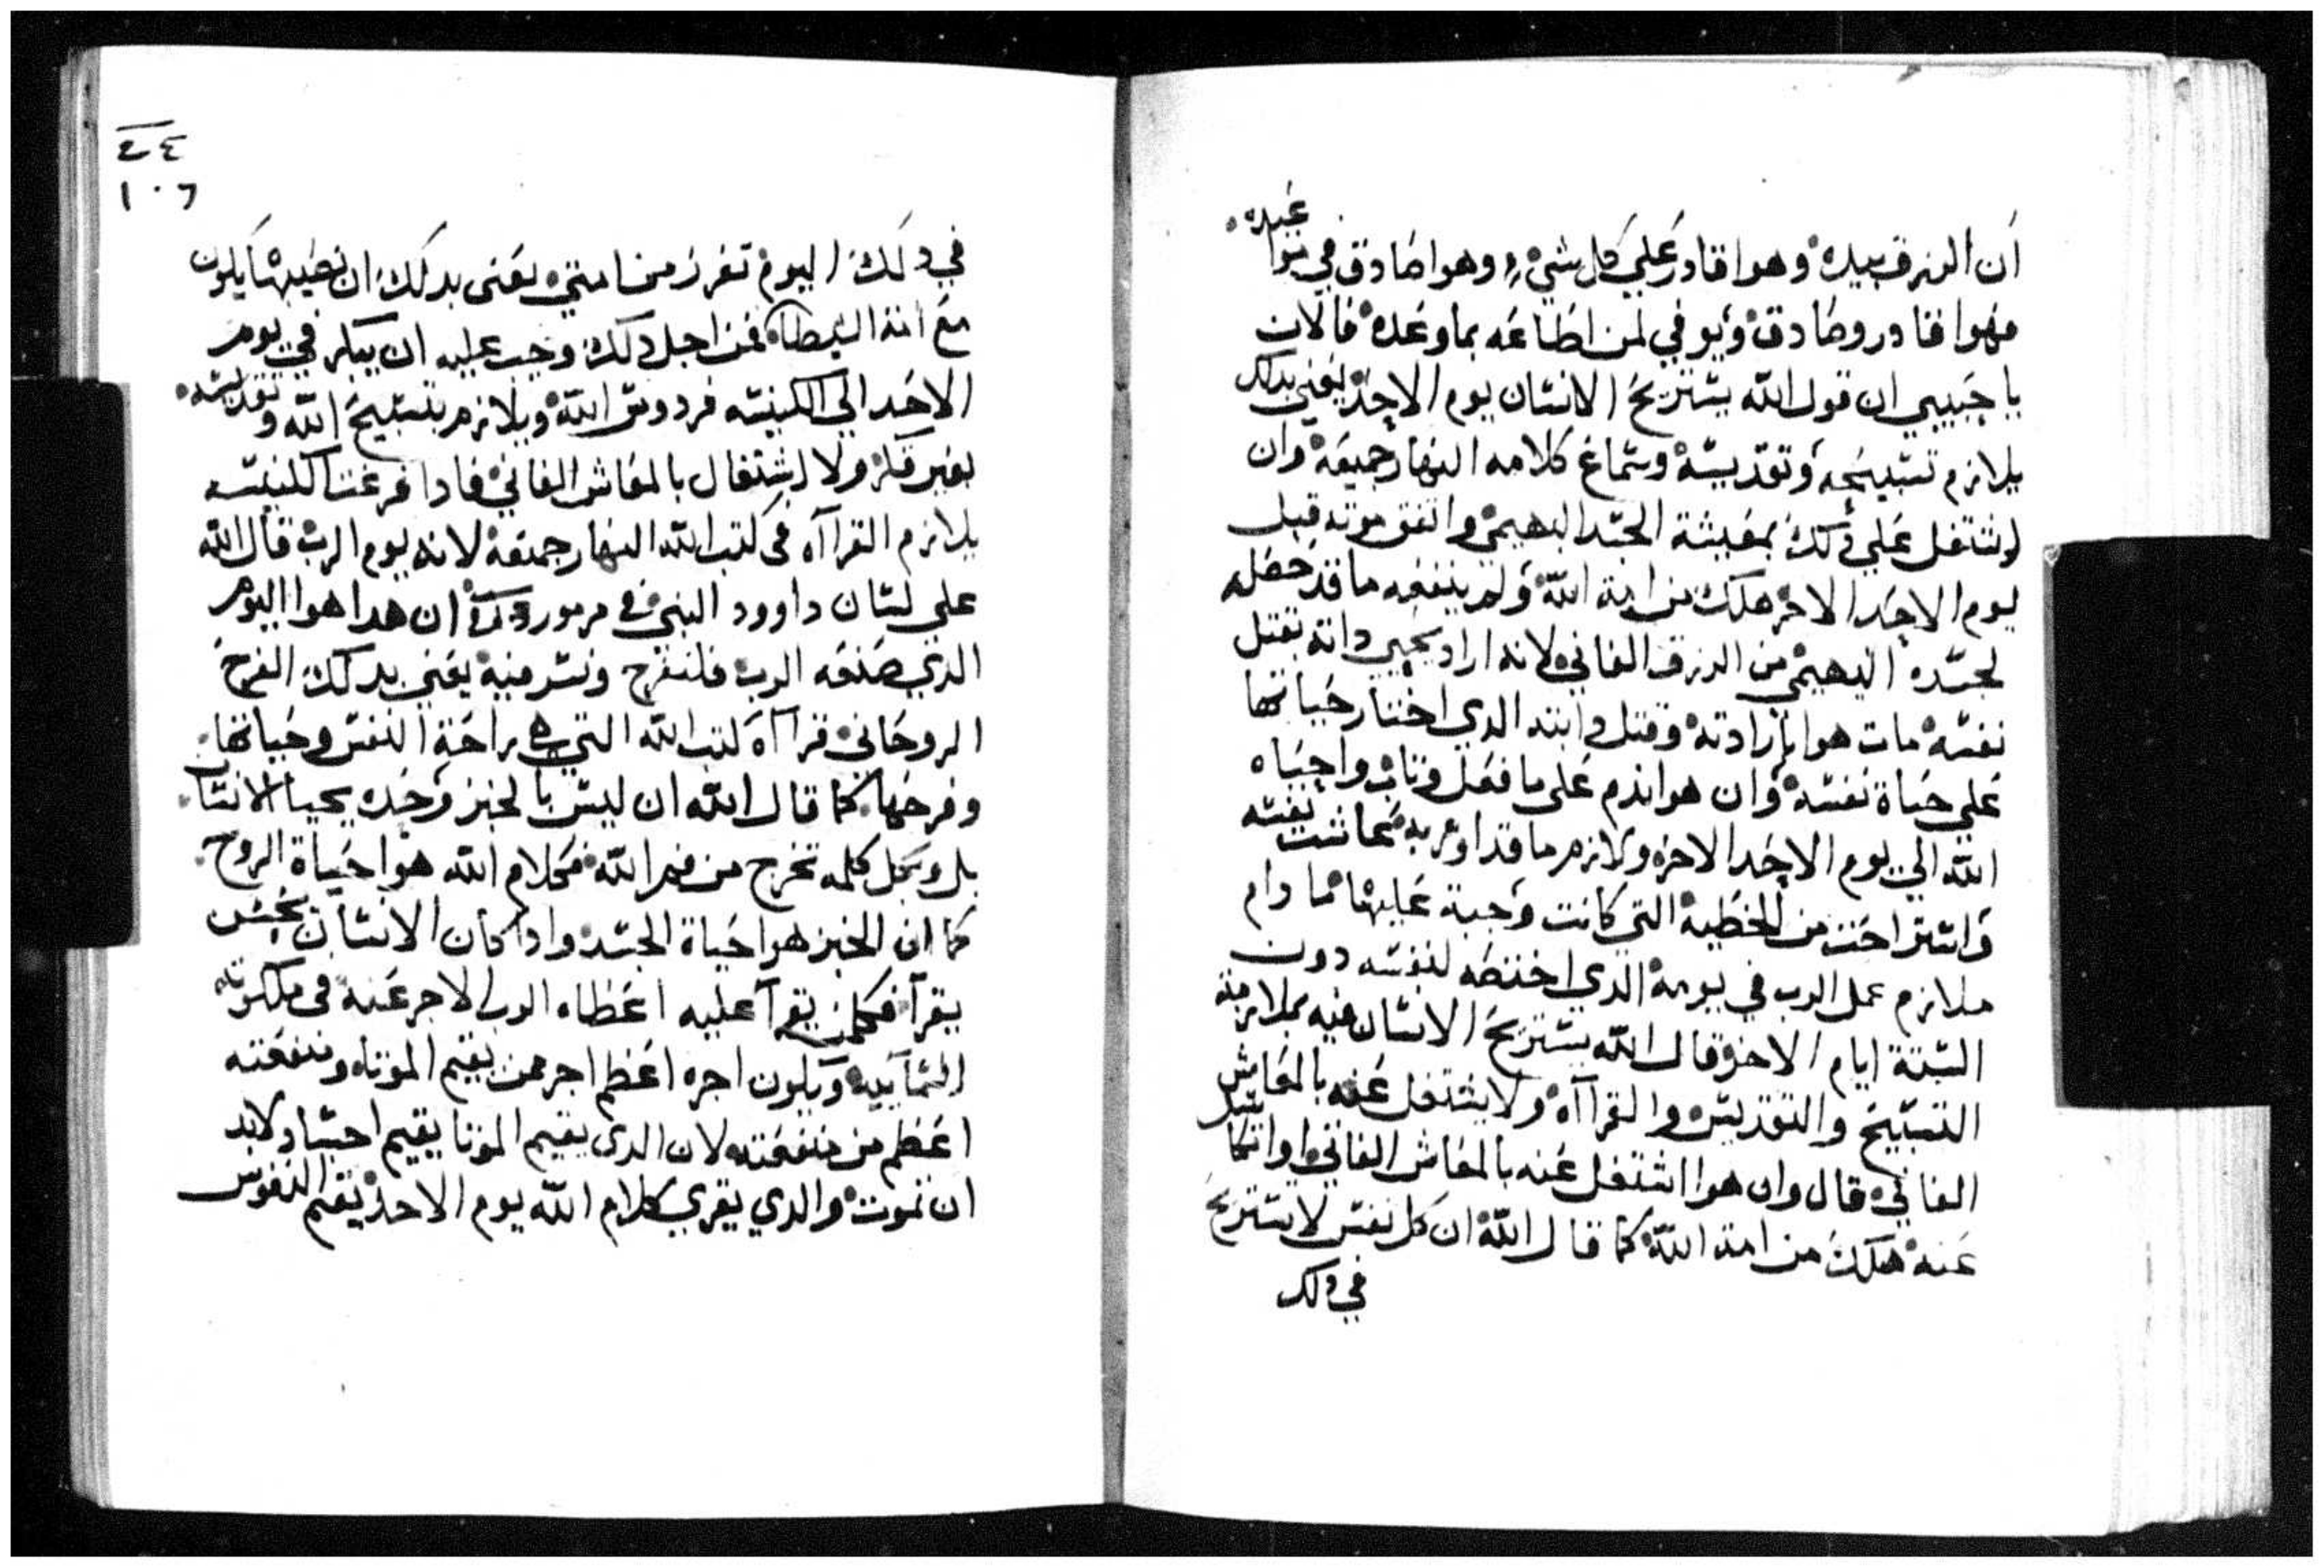 ان الرزق بيده وهوا قادر علي كل شي وهوا صادق في مواعيده
فهوا قادر وصادق ويوفي لمن اطاعه بما وعده فالان
يا حبيبي ان قول الله يستريح الانسان يوم الاحد يعني بدلك
يلازم تسبيحه وتقديسه وسماع كلامه النهار جميعه وان
اشتغل علي دلك بمعيشة الجسد البهيمي واتفق موته قبل
يوم الاحد الاخر هلك من امة الله ولم ينفعه ما قد حصله
لجسده البهيمي من الرزق الفاني لانه اراد يحيي داته بقتل
نفسه مات هوا بارادته وقتل دابته الدي اختار حياتها
علي حياة نفسه وان هوا ندم علي ما فعل وتاب واحياه
الله الي يوم الاحد الاخر ولازم ما قد اومر به عاشت نفسه
واستراحت من الخطية التي كانت وجبة عليها ما دام
ملازم عمل الرب في يومه الدي اختصه لنفسه دون
الستة ايام الاخر وقال الله يستريح الانسان فيه بملازمة
التسبيح والتقديس والقراآه ولا يشتغل عنه بالمعاش
الفاني قال وان هوا اشتغل عنه بالمعاش الفاني او اتكاسل
عنه هلك من امة الله كما قال الله ان كل نفس لا يستريح
في دلك
٤٤
١٠٦
في دلك اليوم تفرز من امتي يعني بدلك ان نصيبها يكون
مع امة الشيطان فمن اجل دلك وجب عليه ان يبكر في يوم
الاحد الي الكنيسه فردوس الله ويلازم بتسبيح الله وتقديسه
بغير فكر ولا اشتغال بالمعاش الفاني فادا فرغت الكنيسه
يلازم القراآه في كتب الله النهار جميعه لانه يوم الرب قال الله
علي لسان داوود النبي في مزمور ان هدا هوا اليوم
الدي صنعه الرب فلنفرح ونسر فيه يعني بدلك الفرح
الروحاني قراآة كتب الله التي هي راحة النفس وحياتها
وفرحها كما قال الله ان ليس بالخبز وحده يحيا الانسان
بل وبكل كلمه تخرج من فم الله فكلام الله هوا حياة الروح
كما ان الخبز هوا حياة الجسد وادا كان الانسان يحسن
يقرآ فكلمن يقرآ عليه اعطاه الرب الاجر عنه في ملكوته
السمآييه ويكون اجره اعظم اجر ممن يقيم الموتاه ومنفعته
اعظم من منفعته لان الدي يقيم الموتا يقيم اجساد لابد
ان تموت والدي يقري كلام الله يوم الاحد يقيم النفوس